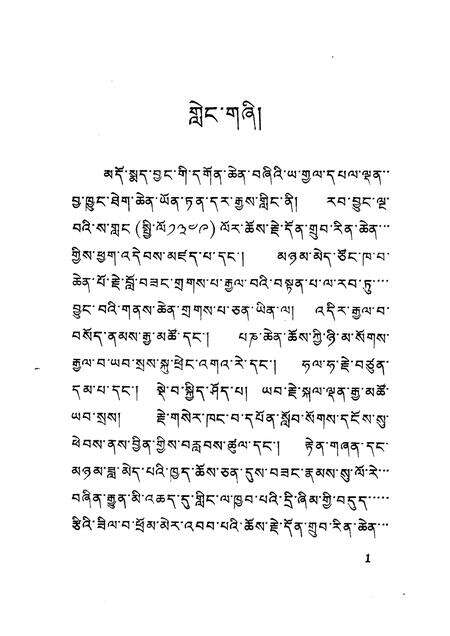 གླེང་གཞི།
མདོ་སྨད་བྱང་གི་དགོན་ཆེན་བཞིའི་ཡ་གྱལ་དཔལ་ལྡན་་
བྱ་ཁྱུང་ཐེག་ཆེན་ཡོན་ཏན་དར་རྒྱས་གླིང་ནི། རབ་བྱུང་ལྔ་
བའི་ས་གླང་(སྤྱི་ལོ༡༣༤༩) ལོར་ཆོས་རྗེ་དོན་གྲུབ་རིན་ཆེན་་་
གྱིས་ཕྱག་འདེབས་མཛད་པ་དང་། མཉམ་མེད་ཙོང་ཁ་བ་
ཆེན་པོ་རྗེ་བློ་བཟང་གྲགས་པ་རྒྱལ་བའི་བསྟན་པ་ལ་རབ་ཏུ་་་
བྱུང་བའི་གནས་ཆེན་གྲགས་པ་ཅན་ཡིན་ལ། འདིར་རྒྱལ་བ་
བསོད་ནམས་རྒྱ་མཚོ་དང་། པཎ་ཆེན་ཆོས་ཀྱི་ཉི་མ་སོགས་
རྒྱལ་བ་ཡབ་སྲས་སྐུ་ཕྲེང་འགའ་རེ་དང་། ཧལ་ཧ་རྗེ་བཙུན་
དམ་པ་དང་། སྡེ་བ་སྐྱིད་ཤོད་པ། ཡབ་རྗེ་སྐལ་ལྡན་རྒྱ་མཚོ་
ཡབ་སྲས། རྗེ་གསེར་ཁང་བ་དཔོན་སློབ་སོགས་དངོས་སུ་
ཕེབས་ནས་བྱིན་གྱིས་བརླབས་ཚུལ་དང་། རྟེན་གཞན་དང་
མཉམ་ཟླ་མེད་པའི་ཁྱད་ཆོས་ཅན་དུས་བཟང་རྣམས་སུ་ལོ་རེ་་་
བཞིན་རྒྱུན་མི་འཆད་དུ་གླིང་ལ་ཁྱབ་པའི་དྲི་ཞིམ་གྱི་བདུད་་་་་
རྩིའི་ཟིལ་བ་ཕྲོམ་མེར་འབབ་པའི་ཆོས་རྗེ་དོན་གྲུབ་རིན་ཆེན་་་
1